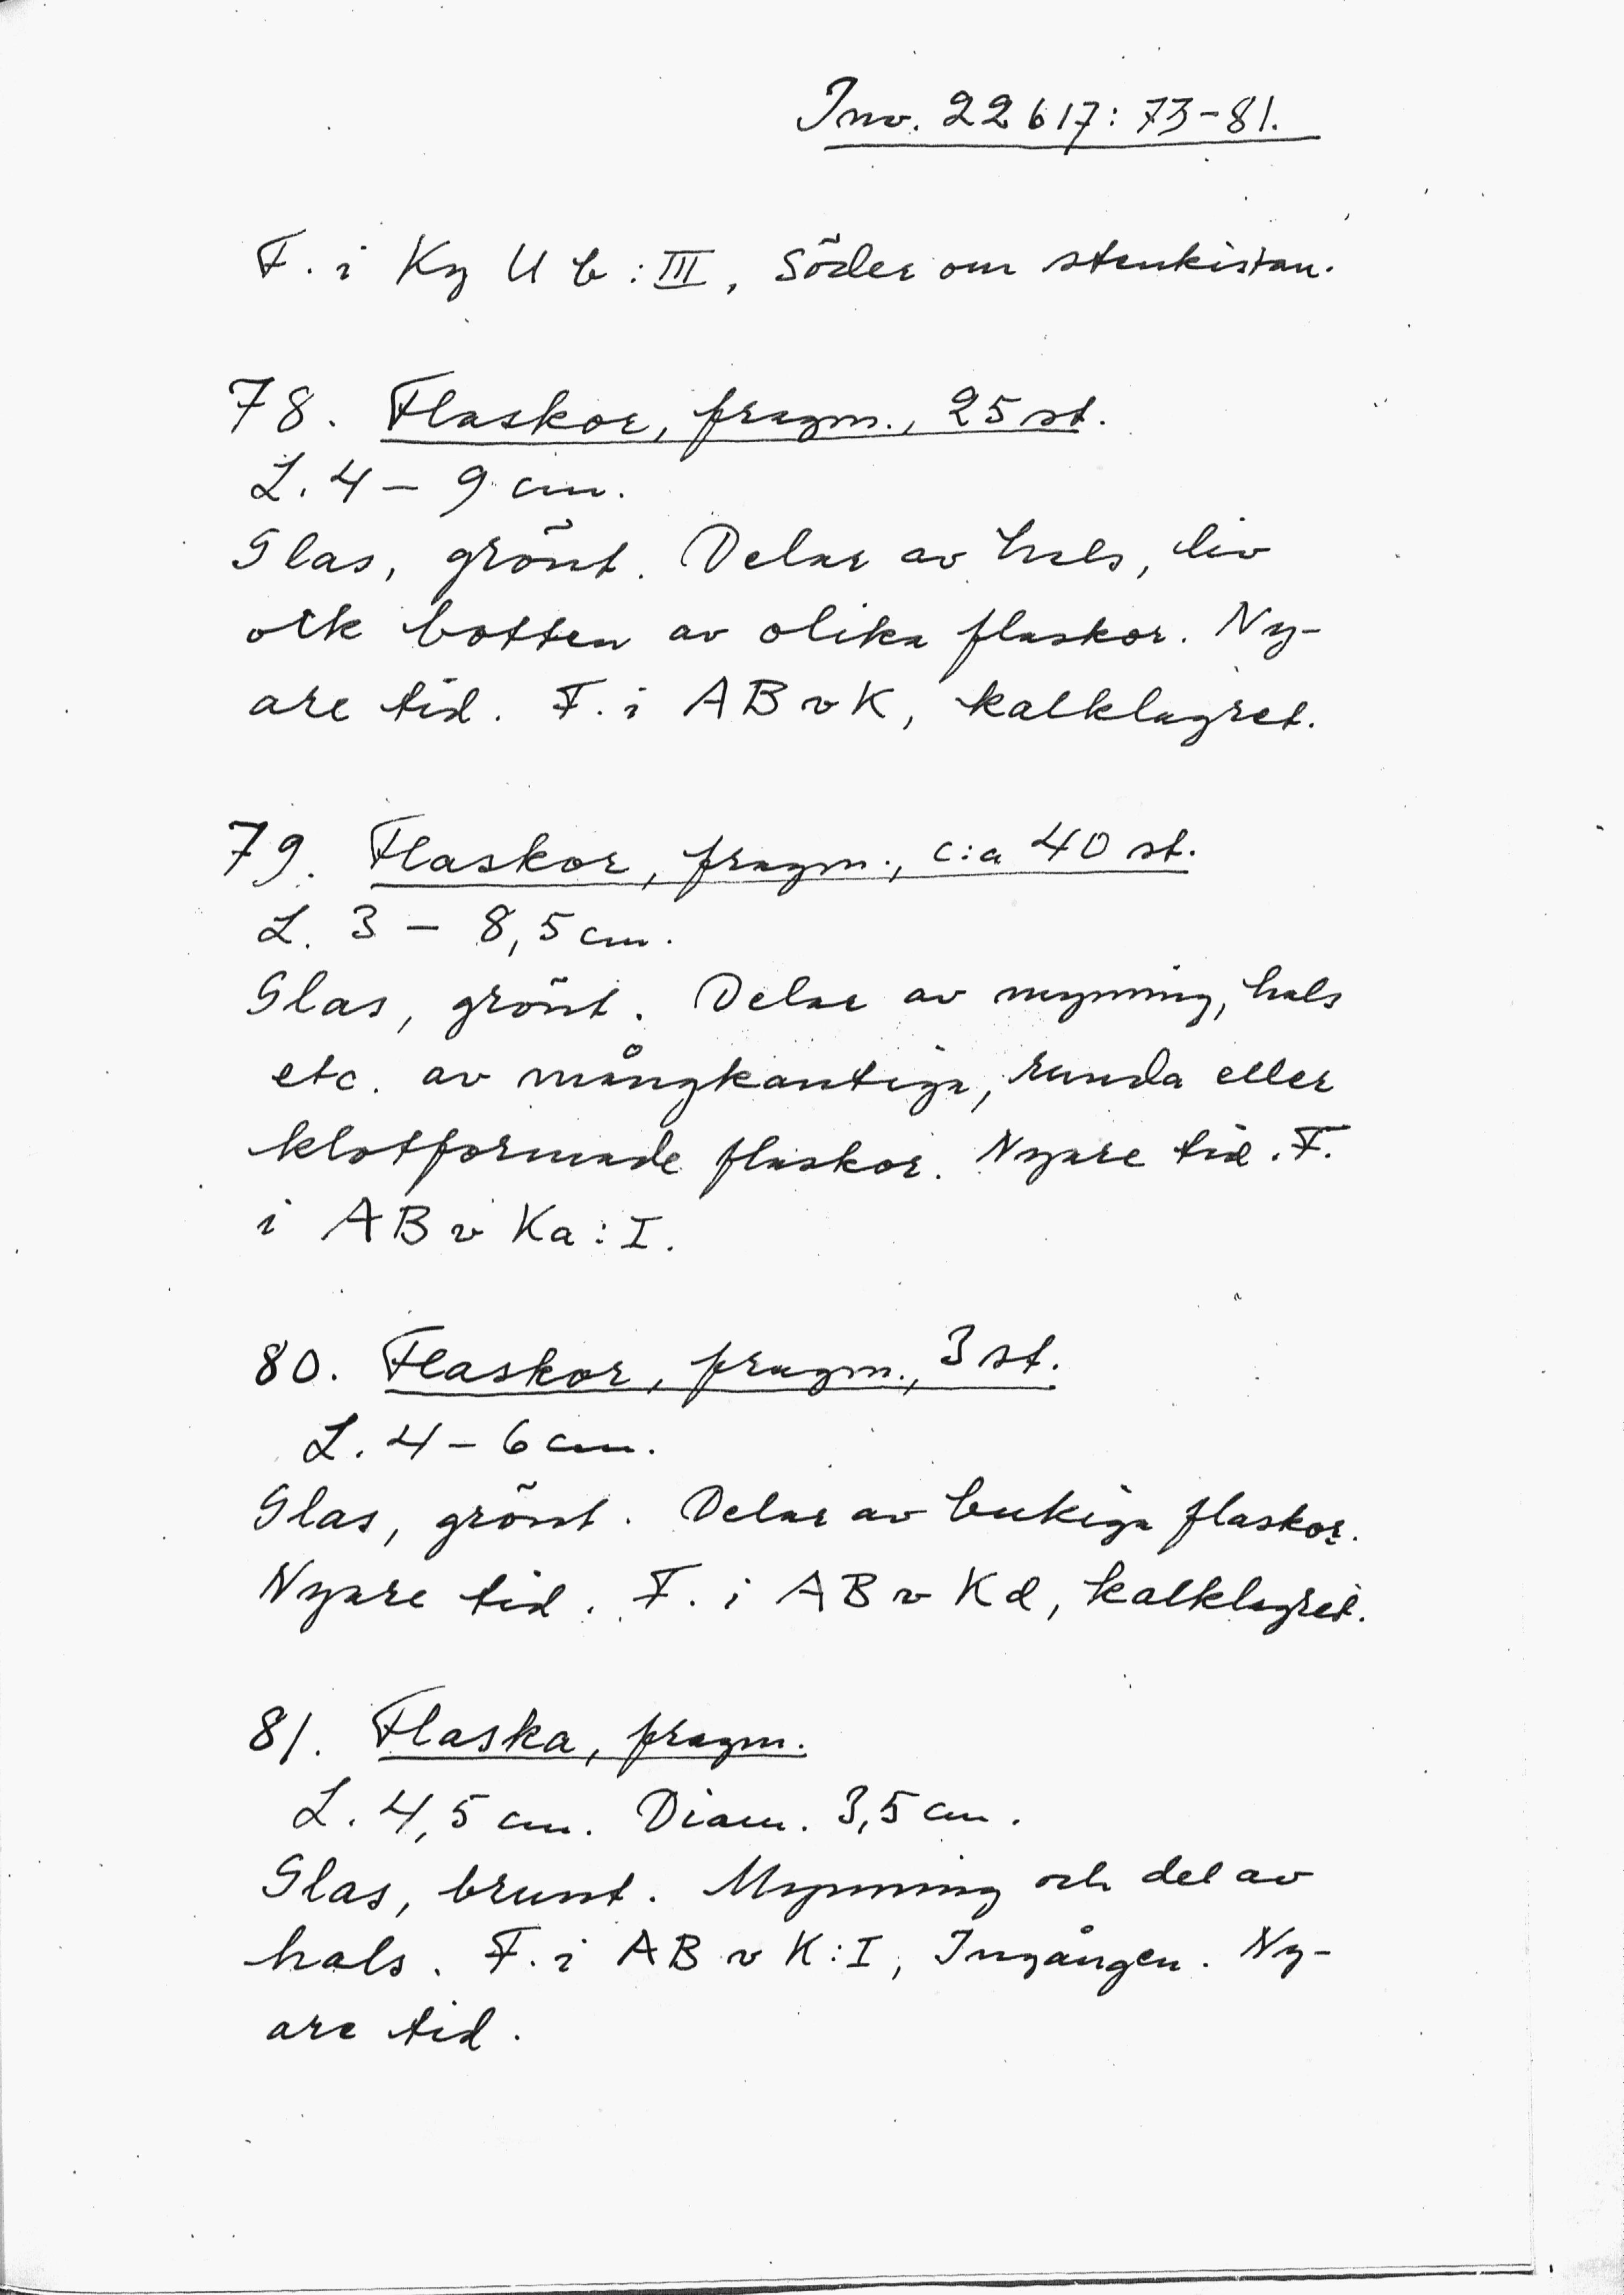 Inv. 22617: 73-81.
F. i Kg U b : III, Söder om stenkistan.
78. Flaskor, fragm., 25 st.
L. 4 - 9 cm.
Glas, grönt. Delar av hals, liv
och botten av olika flaskor. Ny-
are tid. F. i AB v K, kalklagret.
79. Flaskor, fragm., c:a 40 st.
L. 3 - 8,5 cm.
Glas, grönt. Delar av mynning, hals
etc. av mångkantiga, runda eller
klotformade flaskor. Nyare tid. F.
i AB v Ka : I.
80. Flaskor, fragm., 3 st.
L. 4 - 6 cm.
Glas, grönt. Delar av bukiga flaskor.
Nyare tid. F. i AB v Kd, kalklagret.
81. Flaska, fragm.
L. 4,5 cm. Diam. 3,5 cm.
Glas, brunt. Mynning och del av
hals. F. i AB v K:I, Ingången. Ny-
are tid.